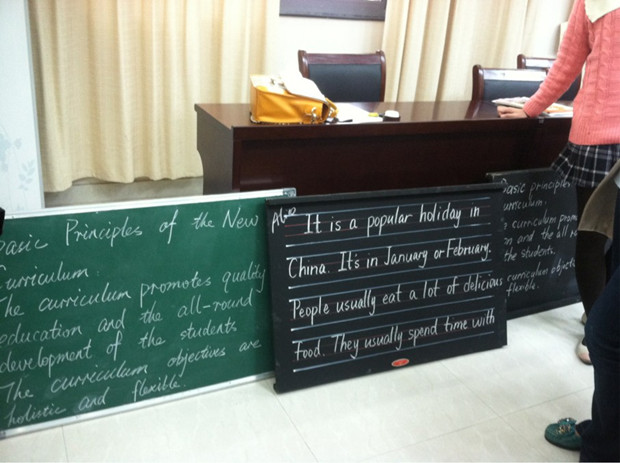 Basic Principles of the New
Curriculum.
The curriculum promotes quality
education and the all-round
development of the students
The curriculum objectives are
holistic and flexible.
It is a popular holiday in
China. It's in January or February.
People usually eat a lot of delicious
Food. They usually spend time with
Basic principles
curriculum.
curriculum prom
and the all r
the students.
curriculum object
flexible.